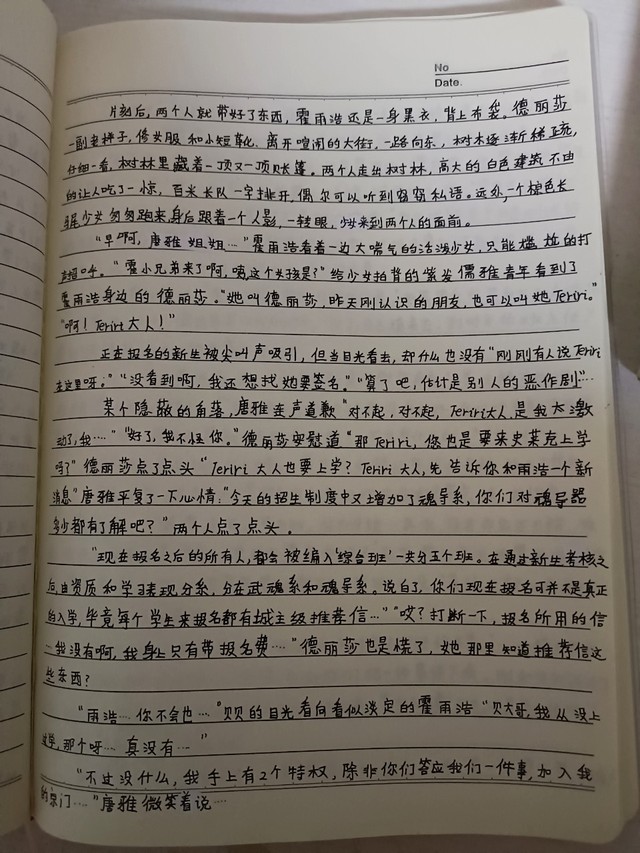 No
Date.
片刻后，两个人就带好了东西，霍雨浩还是一身黑衣，背上布袋。德丽莎
一副老样子，修女服和小短靴。离开喧闹的大街，一路向东，树木逐渐稀疏，
仔细一看，树林里藏着一顶又一顶账篷。两个人走出树林，高大的白色建筑不由
的让人吃了一惊，百米长队一字排开，偶尔可以听到窃窃私语。远处，一个棕色长
马尾少女匆匆跑来，身后跟着一个人影，一转眼，少女来到两个人的面前。
"早啊，唐雅姐姐…"霍雨浩看着一边大喘气的活泼少女，只能尴尬的打
招呼。"霍小兄弟来了啊，咦，这个女孩是？"给少女拍背的紫发儒雅青年看到了
霍雨浩身边的德丽莎。"她叫德丽莎，昨天刚认识的朋友，也可以叫她Teriri。"
"啊！Teriri大人！"
正在报名的新生被尖叫声吸引，但当目光看去，却什么也没有"刚刚有人说Teriri
在这里呀。""没看到啊，我还想找她要签名。""算了吧，估计是别人的恶作剧…"
某个隐蔽的角落，唐雅连声道歉"对不起，对不起，Teriri大人，是我太激
动了，我…""好了，我不怪你。"德丽莎安慰道"那Teriri，您也是要来史莱克上学
吗？"德丽莎点了点头"Teriri大人也要上学？Teriri大人，先告诉你和雨浩一个新
消息"唐雅平复了一下心情："今天的招生制度中又增加了魂导系，你们对魂导器
多少都有了解吧？"两个人点了点头。
"现在报名之后的所有人，都会被编入'综合班'一共分五个班。在通过新生考核之
后，由资质和学习表现分系，分在武魂系和魂导系。说白了，你们现在报名可并不是真正
的入学，毕竟每个学生来报名都有城主级推荐信…""哎？打断一下，报名所用的信
…我没有啊，我身上只有带报名费…"德丽莎也是慌了，她那里知道推荐信这
些东西？
"雨浩…你不会也…"贝贝的目光看向看似淡定的霍雨浩"贝大哥，我从没上
过学，那个呀…真没有…"
"不过没什么，我手上有2个特权，除非你们答应我们一件事，加入我
的宗门…"唐雅微笑着说…